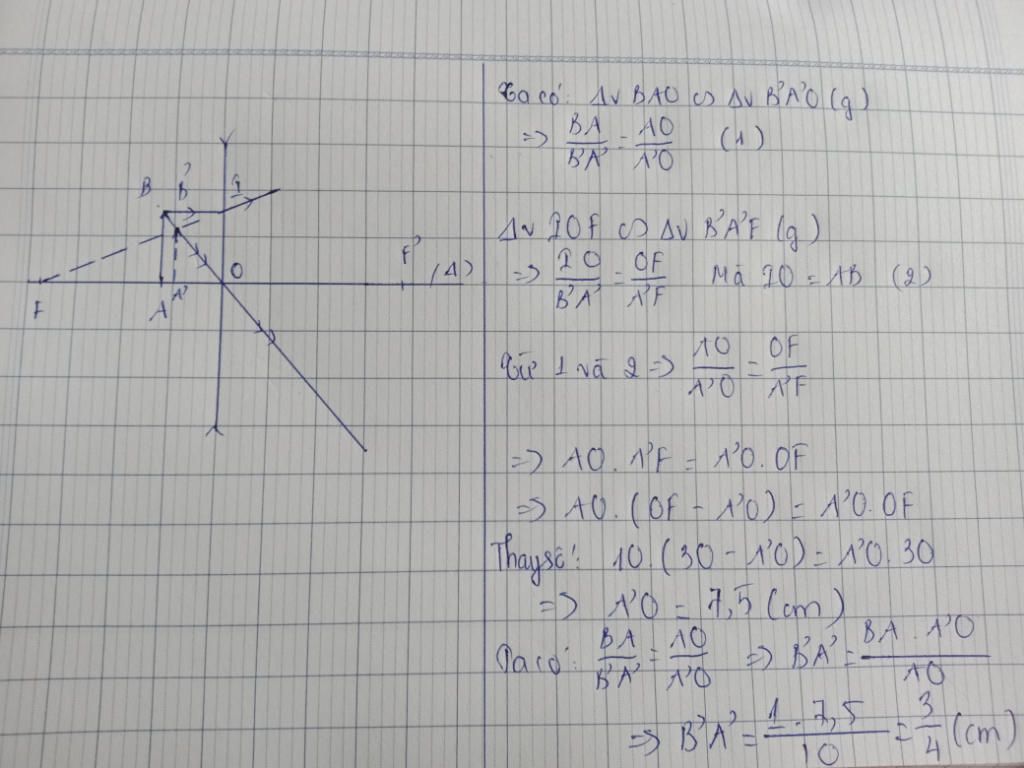 B B' I
F A A' O F' (Δ)
Ta có: Δv BAO ∽ Δv B'A'O (g)
=> BA/B'A' = AO/A'O (1)
Δv IOF ∽ Δv B'A'F (g)
=> IO/B'A' = OF/A'F Mà IO = AB (2)
Từ 1 và 2 => AO/A'O = OF/A'F
=> AO . A'F = A'O . OF
=> AO . (OF - A'O) = A'O . OF
Thay số: 10 . (30 - A'O) = A'O . 30
=> A'O = 7,5 (cm)
Ta có: BA/B'A' = AO/A'O => B'A' = BA . A'O/AO
=> B'A' = 1 . 7,5/10 = 3/4 (cm)